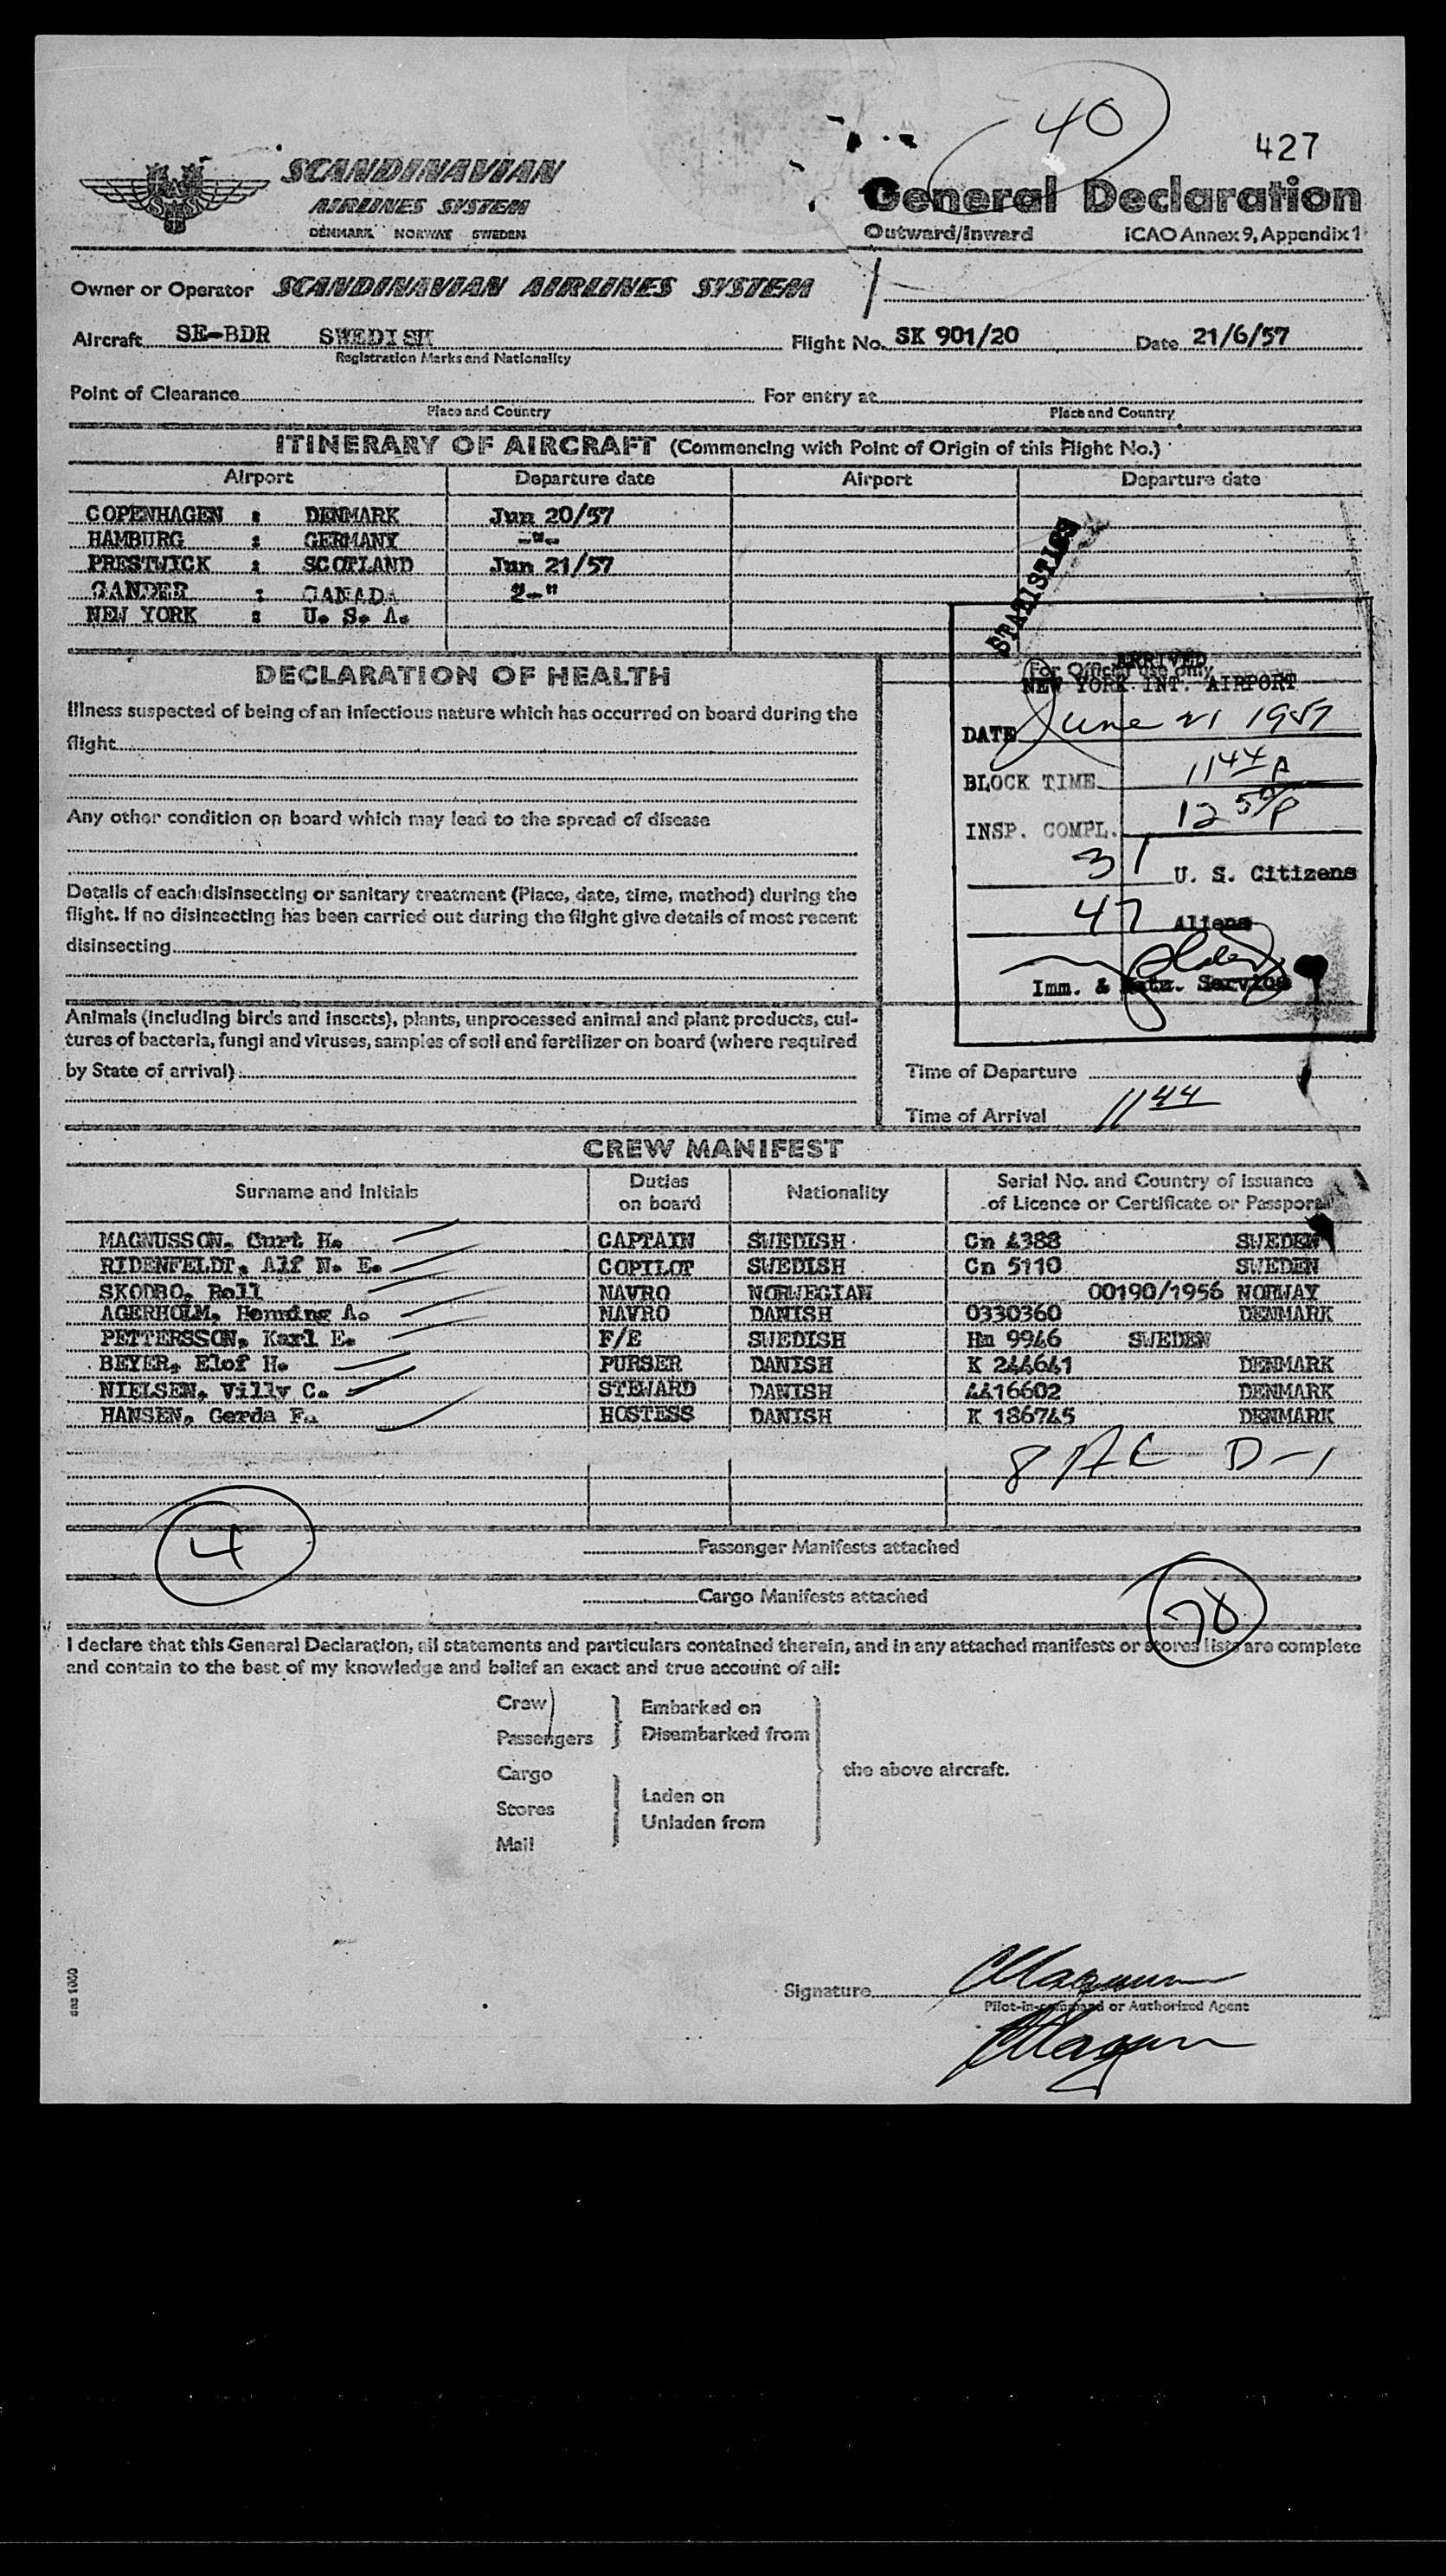 40
427
SCANDINAVIAN
AIRLINES SYSTEM
DENMARK NORWAY SWEDEN
General Declaration
Outward/Inward ICAO Annex 9, Appendix 1
Owner or Operator SCANDINAVIAN AIRLINES SYSTEM
Aircraft SE-BDR SWEDISH Flight No. SK 901/20 Date 21/6/57
Registration Marks and Nationality
Point of Clearance For entry at
Place and Country Place and Country
ITINERARY OF AIRCRAFT (Commencing with Point of Origin of this Flight No.)
Airport Departure date Airport Departure date
COPENHAGEN : DENMARK Jun 20/57
HAMBURG : GERMANY -"-
PRESTWICK : SCOTLAND Jun 21/57
GANDER : CANADA
NEW YORK : U. S. A.
STATISTICS
DECLARATION OF HEALTH
Illness suspected of being of an infectious nature which has occurred on board during the
flight
Any other condition on board which may lead to the spread of disease
Details of each disinsecting or sanitary treatment (Place, date, time, method) during the
flight. If no disinsecting has been carried out during the flight give details of most recent
disinsecting
Animals (including birds and insects), plants, unprocessed animal and plant products, cul-
tures of bacteria, fungi and viruses, samples of soil and fertilizer on board (where required
by State of arrival)
For Official use only
ARRIVED
NEW YORK INT. AIRPORT
DATE June 21 1957
BLOCK TIME 1144 A
INSP. COMPL. 12 50 P
31 U. S. Citizens
47 Aliens
Imm. & Natz. Service
Time of Departure
Time of Arrival 1144
CREW MANIFEST
Surname and Initials Duties on board Nationality Serial No. and Country of issuance of Licence or Certificate or Passport
MAGNUSSON, Curt H. CAPTAIN SWEDISH Cn 4388 SWEDEN
RIDENFELDT, Alf N. E. COPILOT SWEDISH Cn 5110 SWEDEN
SKODBO, Rolf NAVRO NORWEGIAN 00190/1956 NORWAY
AGERHOLM, Henning A. NAVRO DANISH 0330360 DENMARK
PETTERSSON, Karl E. F/E SWEDISH Hm 9946 SWEDEN
BEYER, Elof H. PURSER DANISH K 244641 DENMARK
NIELSEN, Villy C. STEWARD DANISH 4416602 DENMARK
HANSEN, Gerda F. HOSTESS DANISH K 186745 DENMARK
D-1
4
Passenger Manifests attached
Cargo Manifests attached
78
I declare that this General Declaration, all statements and particulars contained therein, and in any attached manifests or stores lists are complete
and contain to the best of my knowledge and belief an exact and true account of all:
Crew
Passengers
Cargo
Stores
Mail
Embarked on
Disembarked from
Laden on
Unladen from
the above aircraft.
sas 1060
Signature CMagnusson
Pilot-in-command or Authorized Agent